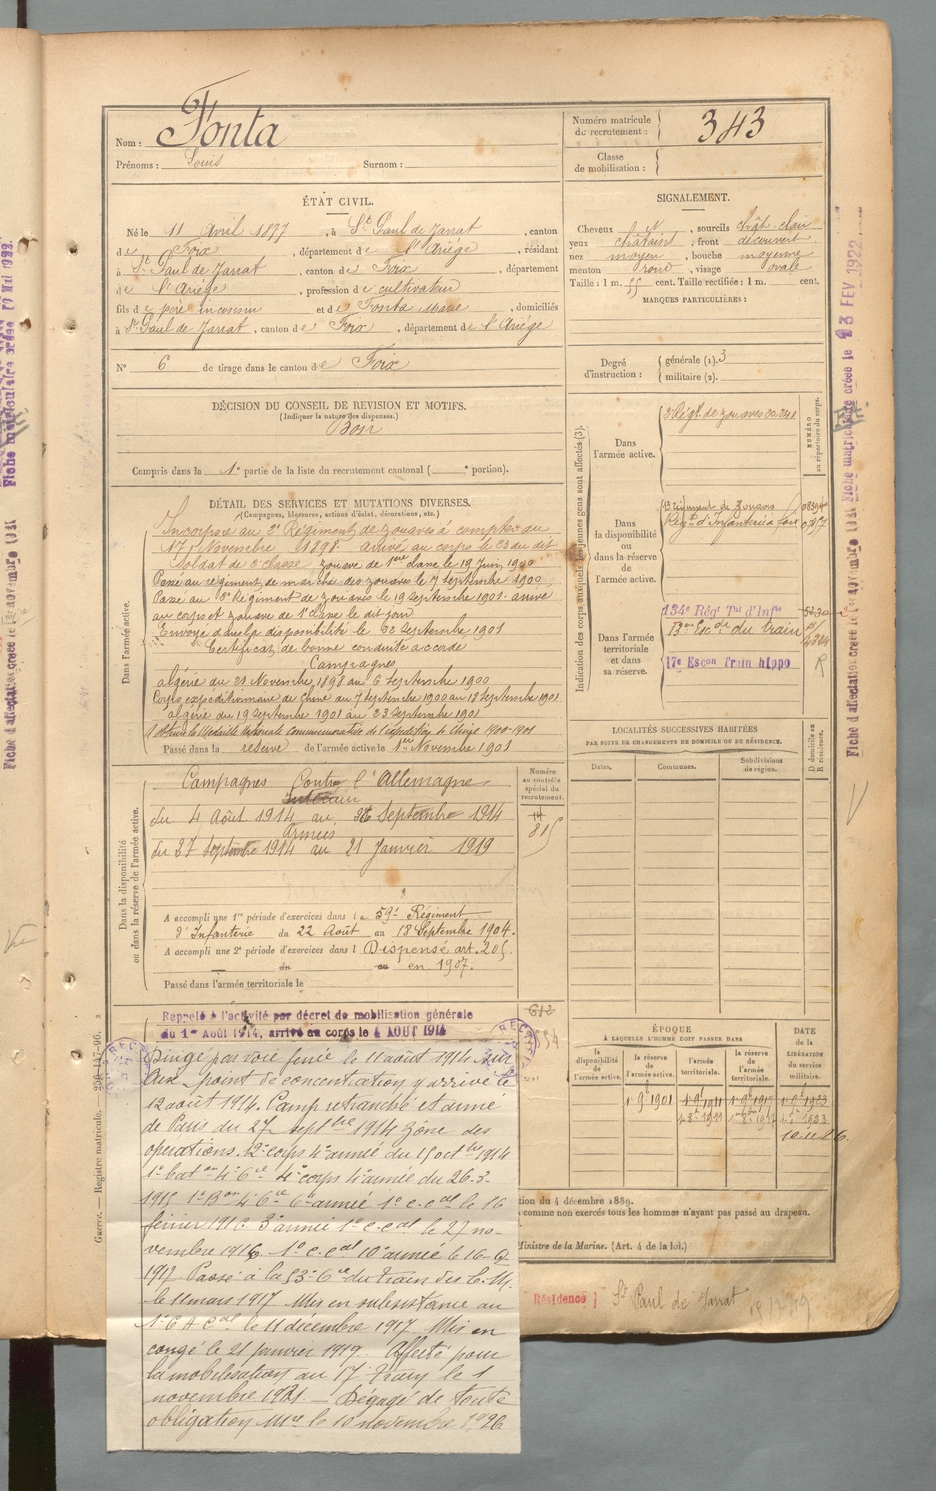 Nom : Fonta
Prénoms : Louis Surnom :
Numéro matricule du recrutement : 343
Classe de mobilisation :
ÉTAT CIVIL.
Né le 11 Avril 1877, à St Paul de Jarrat, canton
de Foix, département de l'Ariége, résidant
à St Paul de Jarrat, canton de Foix, département
de l'Ariége, profession de cultivateur
fils de père inconnu et de Fonta Marie, domiciliés
à St Paul de Jarrat, canton de Foix, département de l'Ariége
N° 6 de tirage dans le canton de Foix
SIGNALEMENT.
Cheveux, sourcils chât. clair
yeux chatains, front découvert
nez moyen, bouche moyenne
menton rond, visage ovale
Taille : 1 m. 55 cent. Taille rectifiée : 1 m. cent.
MARQUES PARTICULIÈRES :
Degré d'instruction : générale (1). 3
militaire (2).
DÉCISION DU CONSEIL DE REVISION ET MOTIFS.
(Indiquer la nature des dispenses.)
Bon
Compris dans la 1e partie de la liste du recrutement cantonal ( e portion).
DÉTAIL DES SERVICES ET MUTATIONS DIVERSES.
(Campagnes, blessures, actions d'éclat, décorations, etc.)
Dans l'armée active.
Incorporé au 3e Régiment de zouaves à compter du
17 Novembre 1898. arrivé au corps le 23 du dit
Soldat de 2e classe. zouave de 1ere classe le 19 Juin 1900
Passé au régiment de marche des zouaves le 7 septembre 1900
Passé au 3e Régiment de zouaves le 19 septembre 1901. arrivé
au corps et zouave de 1e classe le dit jour
Envoyé dans la disponibilité le 22 septembre 1901
Certificat de bonne conduite accordé
Campagnes
algérie du 21 Novembre 1898 au 6 Septembre 1900
Corps expéditionnaire de Chine du 7 septembre 1900 au 18 septembre 1901
algérie du 19 septembre 1901 au 23 septembre 1901
A obtenu la Médaille coloniale commémorative de l'expédition de Chine 1900-1901
Passé dans la réserve de l'armée active le 1er Novembre 1901
Indication des corps auxquels les jeunes gens sont affectés (3).
NUMÉRO au répertoire du corps.
Dans l'armée active.
3e Régt. de zouaves
Dans la disponibilité ou dans la réserve de l'armée active.
Régiment de Zouaves
Régt d'Infanterie à Foix
Dans l'armée territoriale et dans sa réserve.
134e Rég' T'al d'Inf'ie
du train
17e Escon Train hippo
LOCALITÉS SUCCESSIVES HABITÉES
PAR SUITE DE CHANGEMENTS DE DOMICILE OU DE RÉSIDENCE.
Dates. Communes. Subdivisions de région. D domicile ou R résidence.
Dans la disponibilité ou dans la réserve de l'armée active.
Numéro au contrôle spécial du recrutement.
815
Campagnes Contre l'Allemagne
Intérieur
du 4 Août 1914 au 26 Septembre 1914
Armées
du 27 septembre 1914 au 21 Janvier 1919
A accompli une 1re période d'exercices dans le 59e Régiment
d'Infanterie du 22 Août au 18 Septembre 1904.
A accompli une 2e période d'exercices dans l Dispensé art. 205
du au en 1907.
Passé dans l'armée territoriale le
Rappelé à l'activité par décret de mobilisation générale
du 1er Août 1914, arrivé au corps le 4 AOUT 1914
Dirigé par voie ferrée le 11 août 1914 sur
Aix point de concentration y arrivé le
12 août 1914. Camp retranché et armé
de Paris du 27 septbre 1914 zone des
opérations. 12e corps 4e armée du 15 octbre 1914
1e baton 4e Cie 4e corps 4e armée du 26-3-
1915 1e Bon 4e Cie 6e armée 1e c.c.al le 16
février 1916. 3e armée 1e c.c.al le 27 no-
vembre 1916. 1e c.c.al 10e armée le 16-
1917 Passé à la 53e Cie du train des E.M.
le 11 mars 1917 Mis en subsistance au
1e C A Cal le 11 décembre 1917. Mis en
congé le 21 janvier 1919. Affecté pour
la mobilisation au 17 Train le 1
novembre 1921. — Dégagé de toute
obligation Mre le 10 novembre 1926
ÉPOQUE
À LAQUELLE L'HOMME DOIT PASSER DANS
la disponibilité de l'armée active. la réserve de l'armée active. l'armée territoriale. la réserve de l'armée territoriale.
DATE DE LA LIBÉRATION du service militaire.
1 9e 1901
10.11.26
tion du 4 décembre 1889.
comme non exercés tous les hommes n'ayant pas passé au drapeau.
Ministre de la Marine. (Art. 4 de la loi.)
Résidence St Paul de Jarrat
Guerre. — Registre matricule.
Fiche matriculaire créée le 23 FEV 1922
Fiche d'affectation créée le 1er novembre